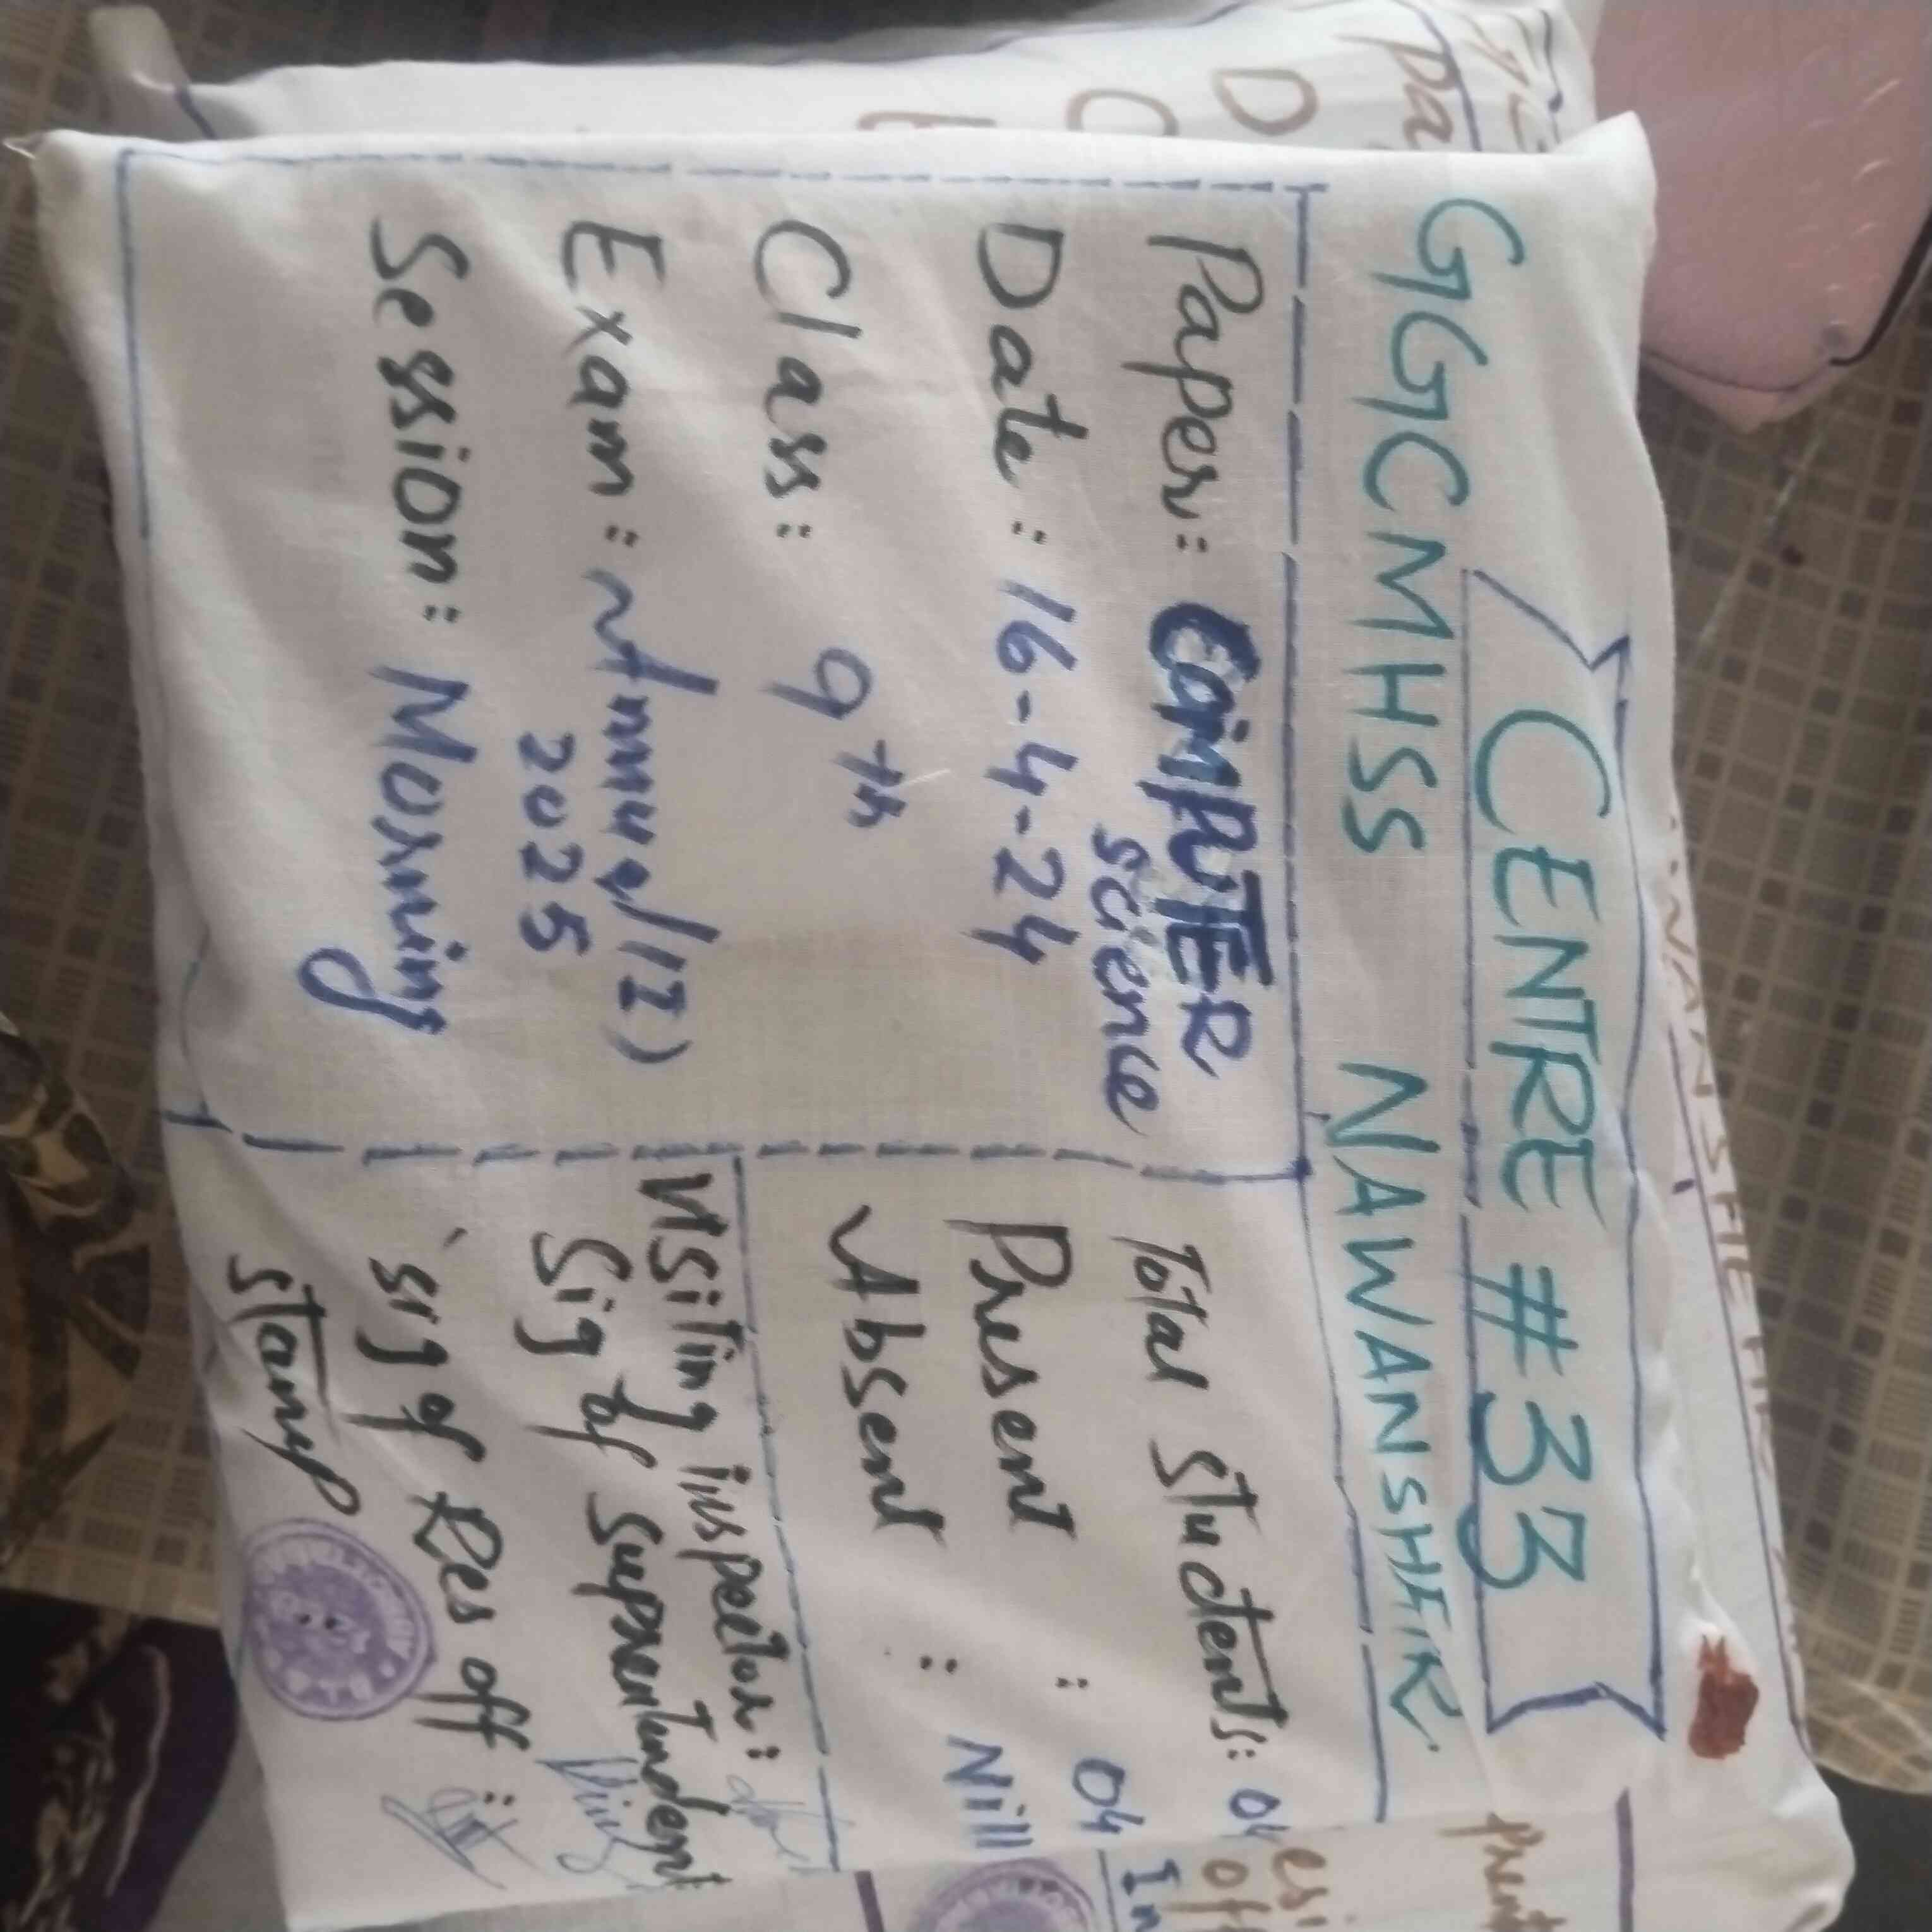 CENTRE #33
GGCMHSS NAWANSHEHR
Paper: COMPUTER
science
Date: 16-4-24
Class: 9th
Exam: Annual(II)
2025
Session: Morning
Total Students: 04
Present : 04
Absent : Nill
Visiting inspector:
Sig of Superintendent
sig of Res off:
stamp